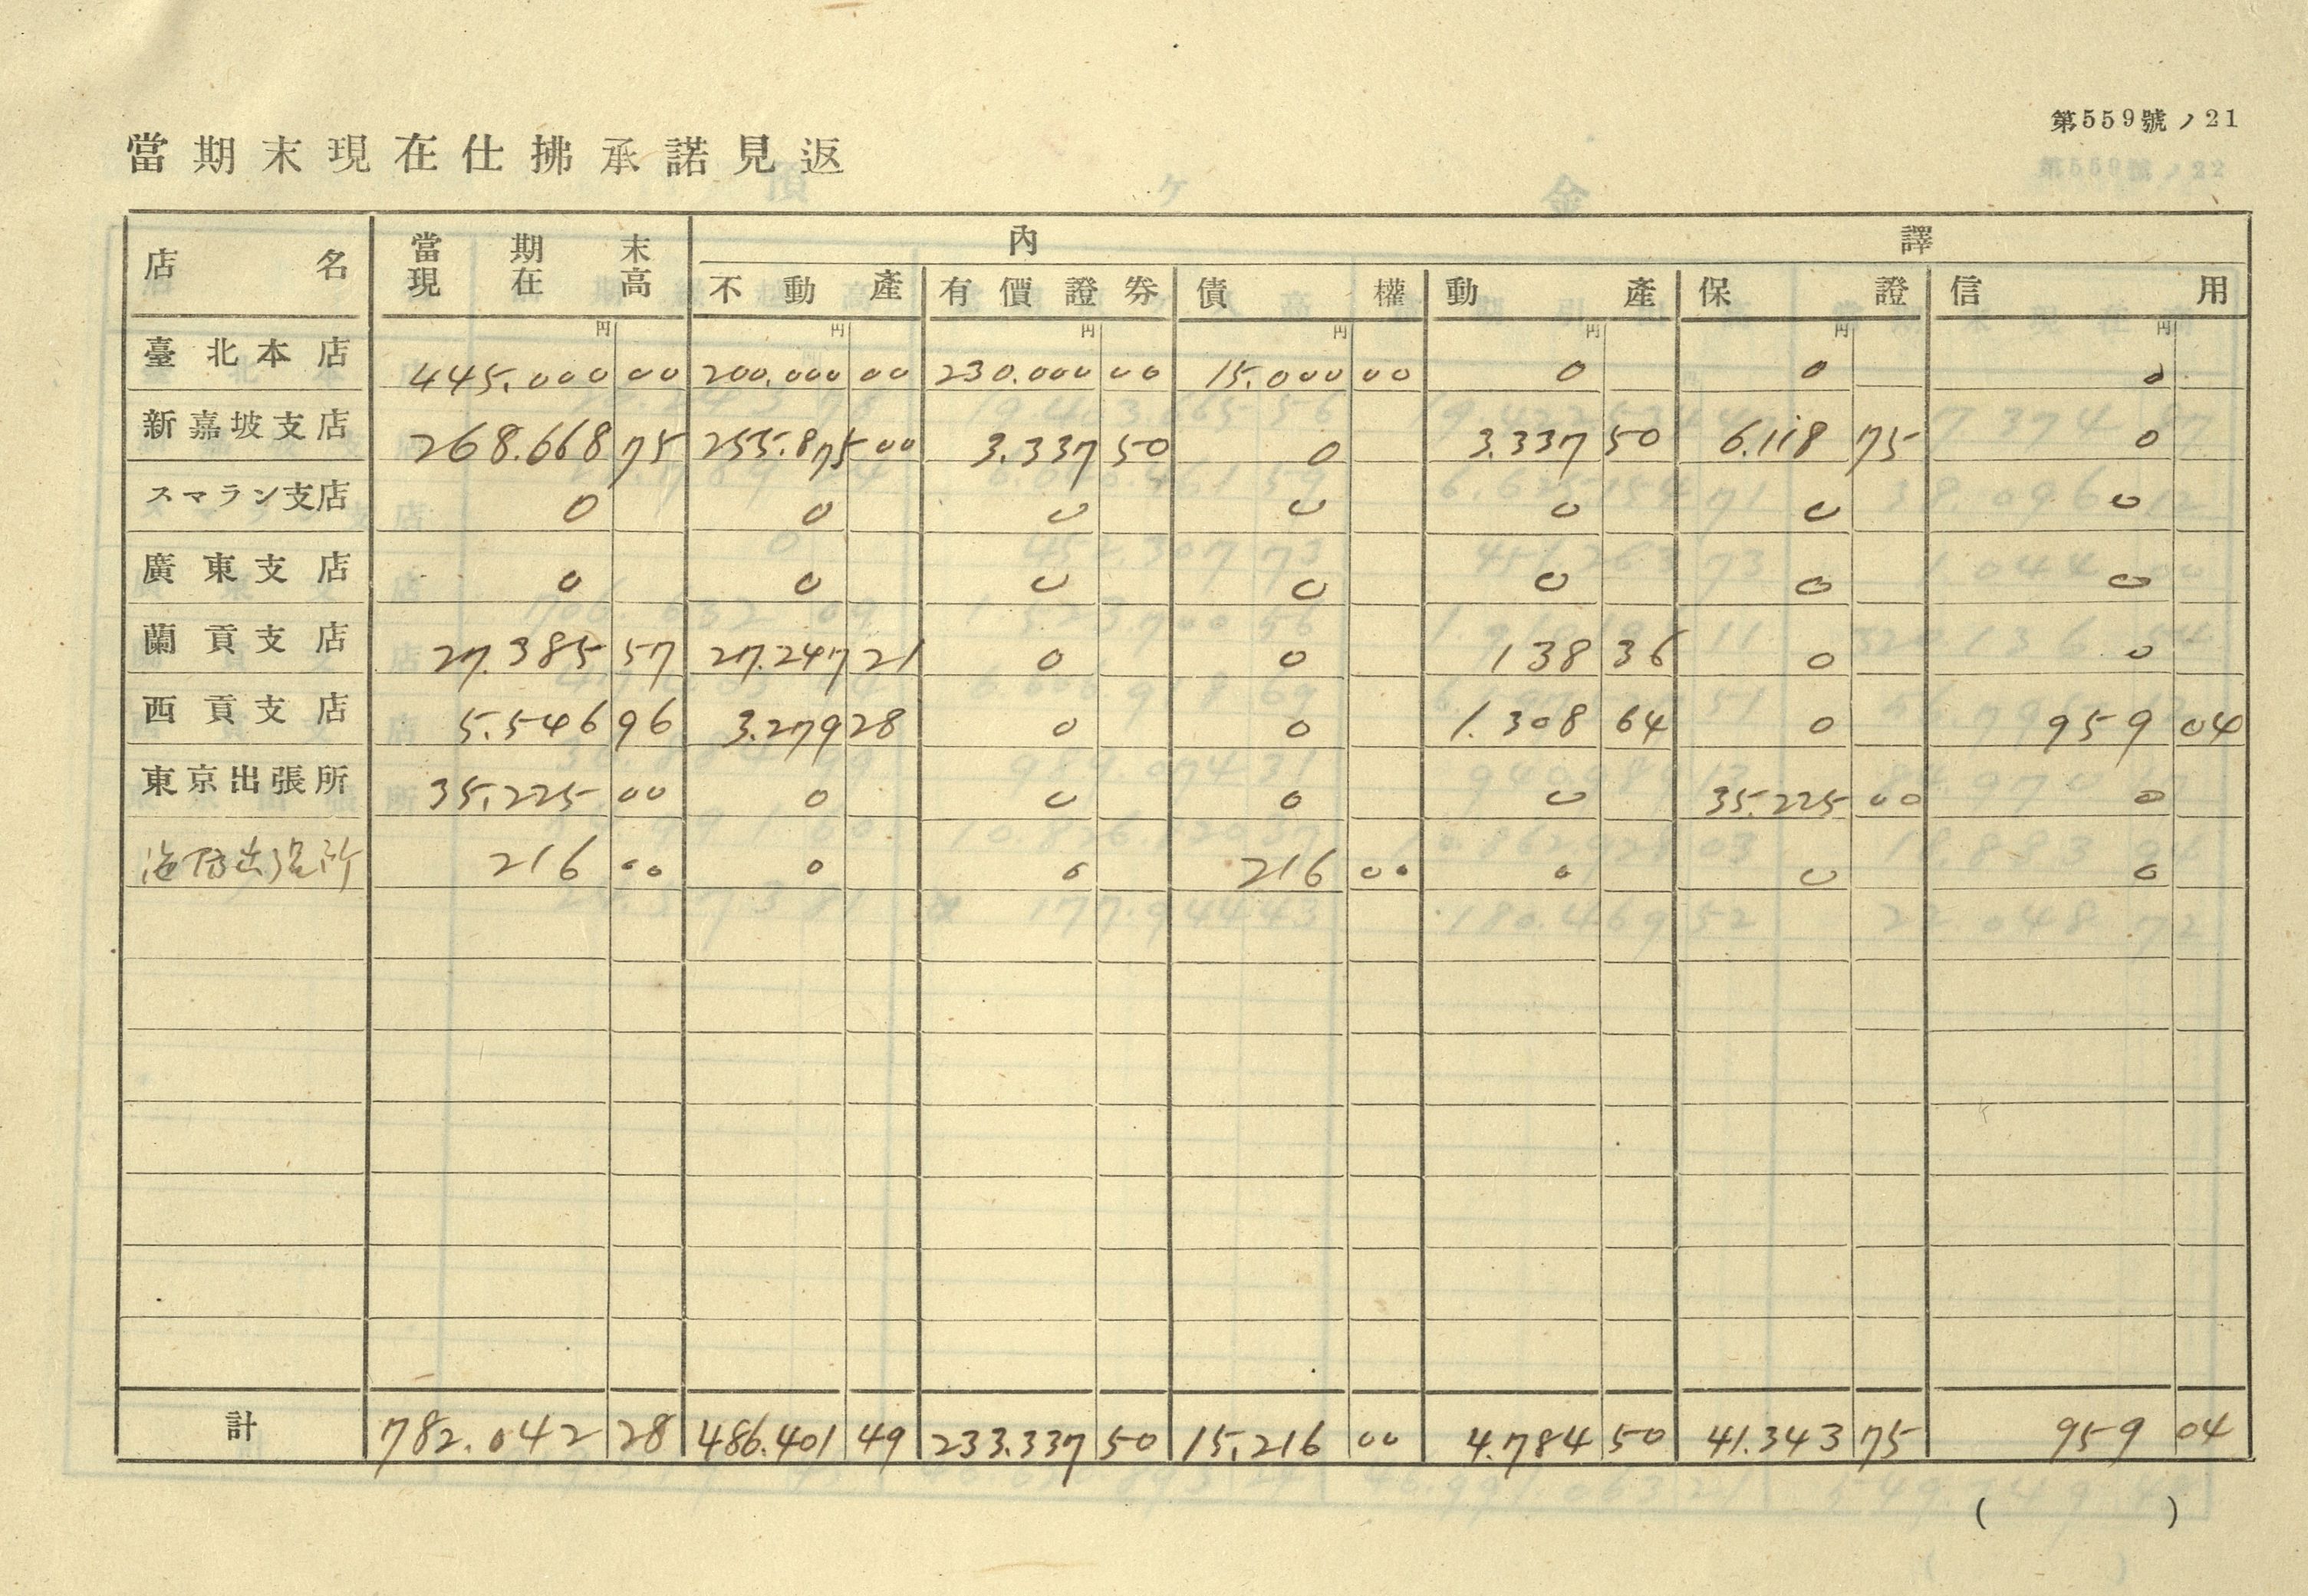 第559號ノ21
當期末現在仕拂承諾見返
店名 當期末現在高 內譯
不動產 有價證券 債權 動產 保證 信用
円 円 円 円 円 円 円
臺北本店 445.000 00 200.000 00 230.000 00 15.000 00 0 0 0
新嘉坡支店 268.668 75 255.875 00 3.337 50 0 3.337 50 6.118 75 0
スマラン支店 0 0 0 0 0 0 0
廣東支店 0 0 0 0 0 0 0
蘭貢支店 27.385 57 27.247 21 0 0 138 36 0 0
西貢支店 5.546 96 3.279 28 0 0 1.308 64 0 959 04
東京出張所 35.225 00 0 0 0 0 35.225 00 0
海防出張所 216 00 0 0 216 00 0 0 0
計 782.042 28 486.401 49 233.337 50 15.216 00 4.784 50 41.343 75 959 04
( )